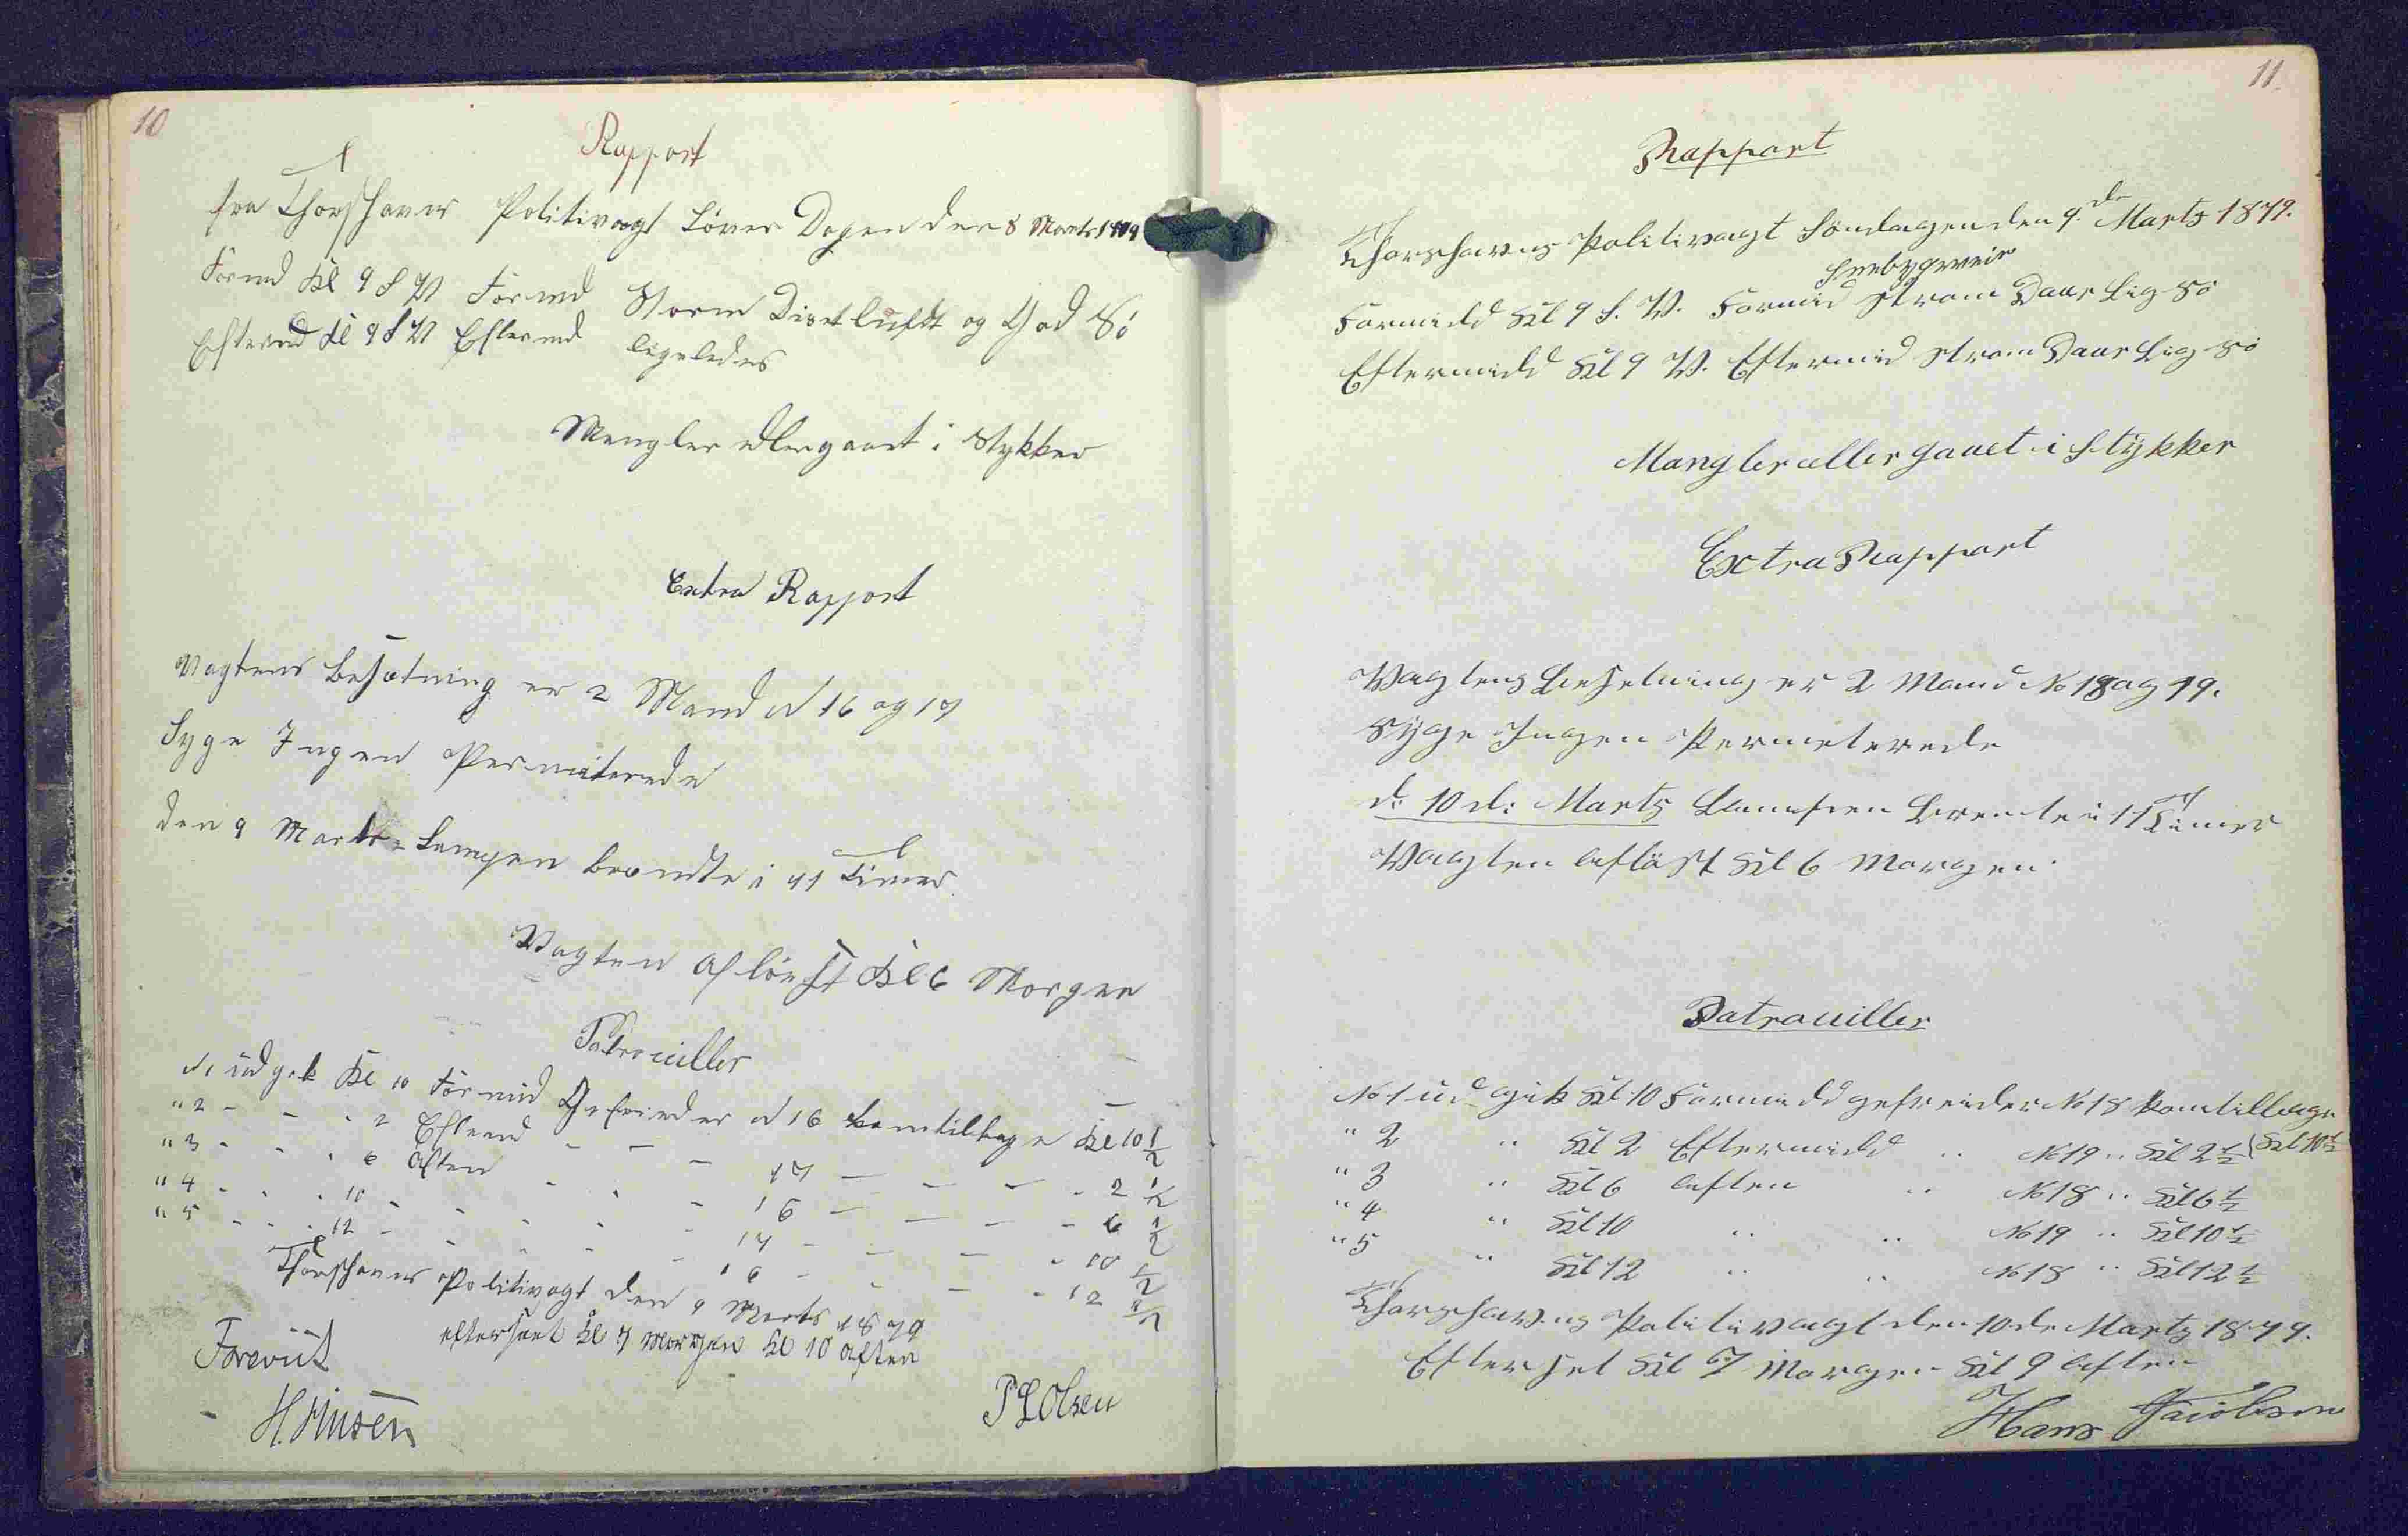 10
Rapport
fra Thorshavns Politivagt Løver Dagen den 8 Marts 1879
Formd Kl 9 S W Formd Storm Disetluft og God Sö
Eftermd Kl 9 S W Eftermd ligeledes
Mangler ellergaaet i Stykker
Extra Rapport
Vagtens Besætning er 2 Mand N 16 og 17
Syge Ingen Permiterede
den 9 Marts Lampen brændte i 11 Timer
Vagten aflöst Kl 6 Morgen
Patrouiller
N 1 udgik Kl 10 Formid Gefreider N 16 komtilbage Kl 10 1/2
" 2 - - " 2 Efterm - - - 17 - - - - 2 1/2
" 3 - - " 6 Aften - - - 16 - - - - 6 1/2
" 4 - - " 10 - - - - 17 - - - - 10 1/2
" 5 - - " 12 - - - - 16 - - - - 12 1/2
Thorshavns Politivagt den 9 Marts 1879
efterseet Kl 7 Morgen Kl 10 Aften
Forevist
P L Olsen
H.
11
Rappart
Thorshavns Politivagt Söndagen den 9.de Marts 1879.
Sneebygeveir
Formidd Kl 9 S. W. Formid Strom Daarlig Sö
Eftermidd Kl 9 W. Eftermid Strom Daarlig Sö
Mangler eller gaaet i Stykker
Extra Rappart
Vagtens Besetning er 2 Mand No 18 og 19.
Syge Ingen Permeterede
d: 10 d: Marts Lampen Brente i 11 Timer
Vagten aflöst Kl 6 Morgen
Patrouiller
No 1 ud gik Kl 10 Formidd gefreider No 18 komtilbage
Kl 10 1/2
" 2 " Kl 2 Eftermidd " No 19 " Kl 2 1/2
" 3 " Kl 6 aften " No 18 " Kl 6 1/2
" 4 " Kl 10 " " No 19 " Kl 10 1/2
" 5 " Kl 12 " " No 18 " Kl 12 1/2
Thorshavns Politivagt den 10 de Marts 1879.
Efterset Kl 7 Morgen Kl 9 aften
Hans Jacobsen